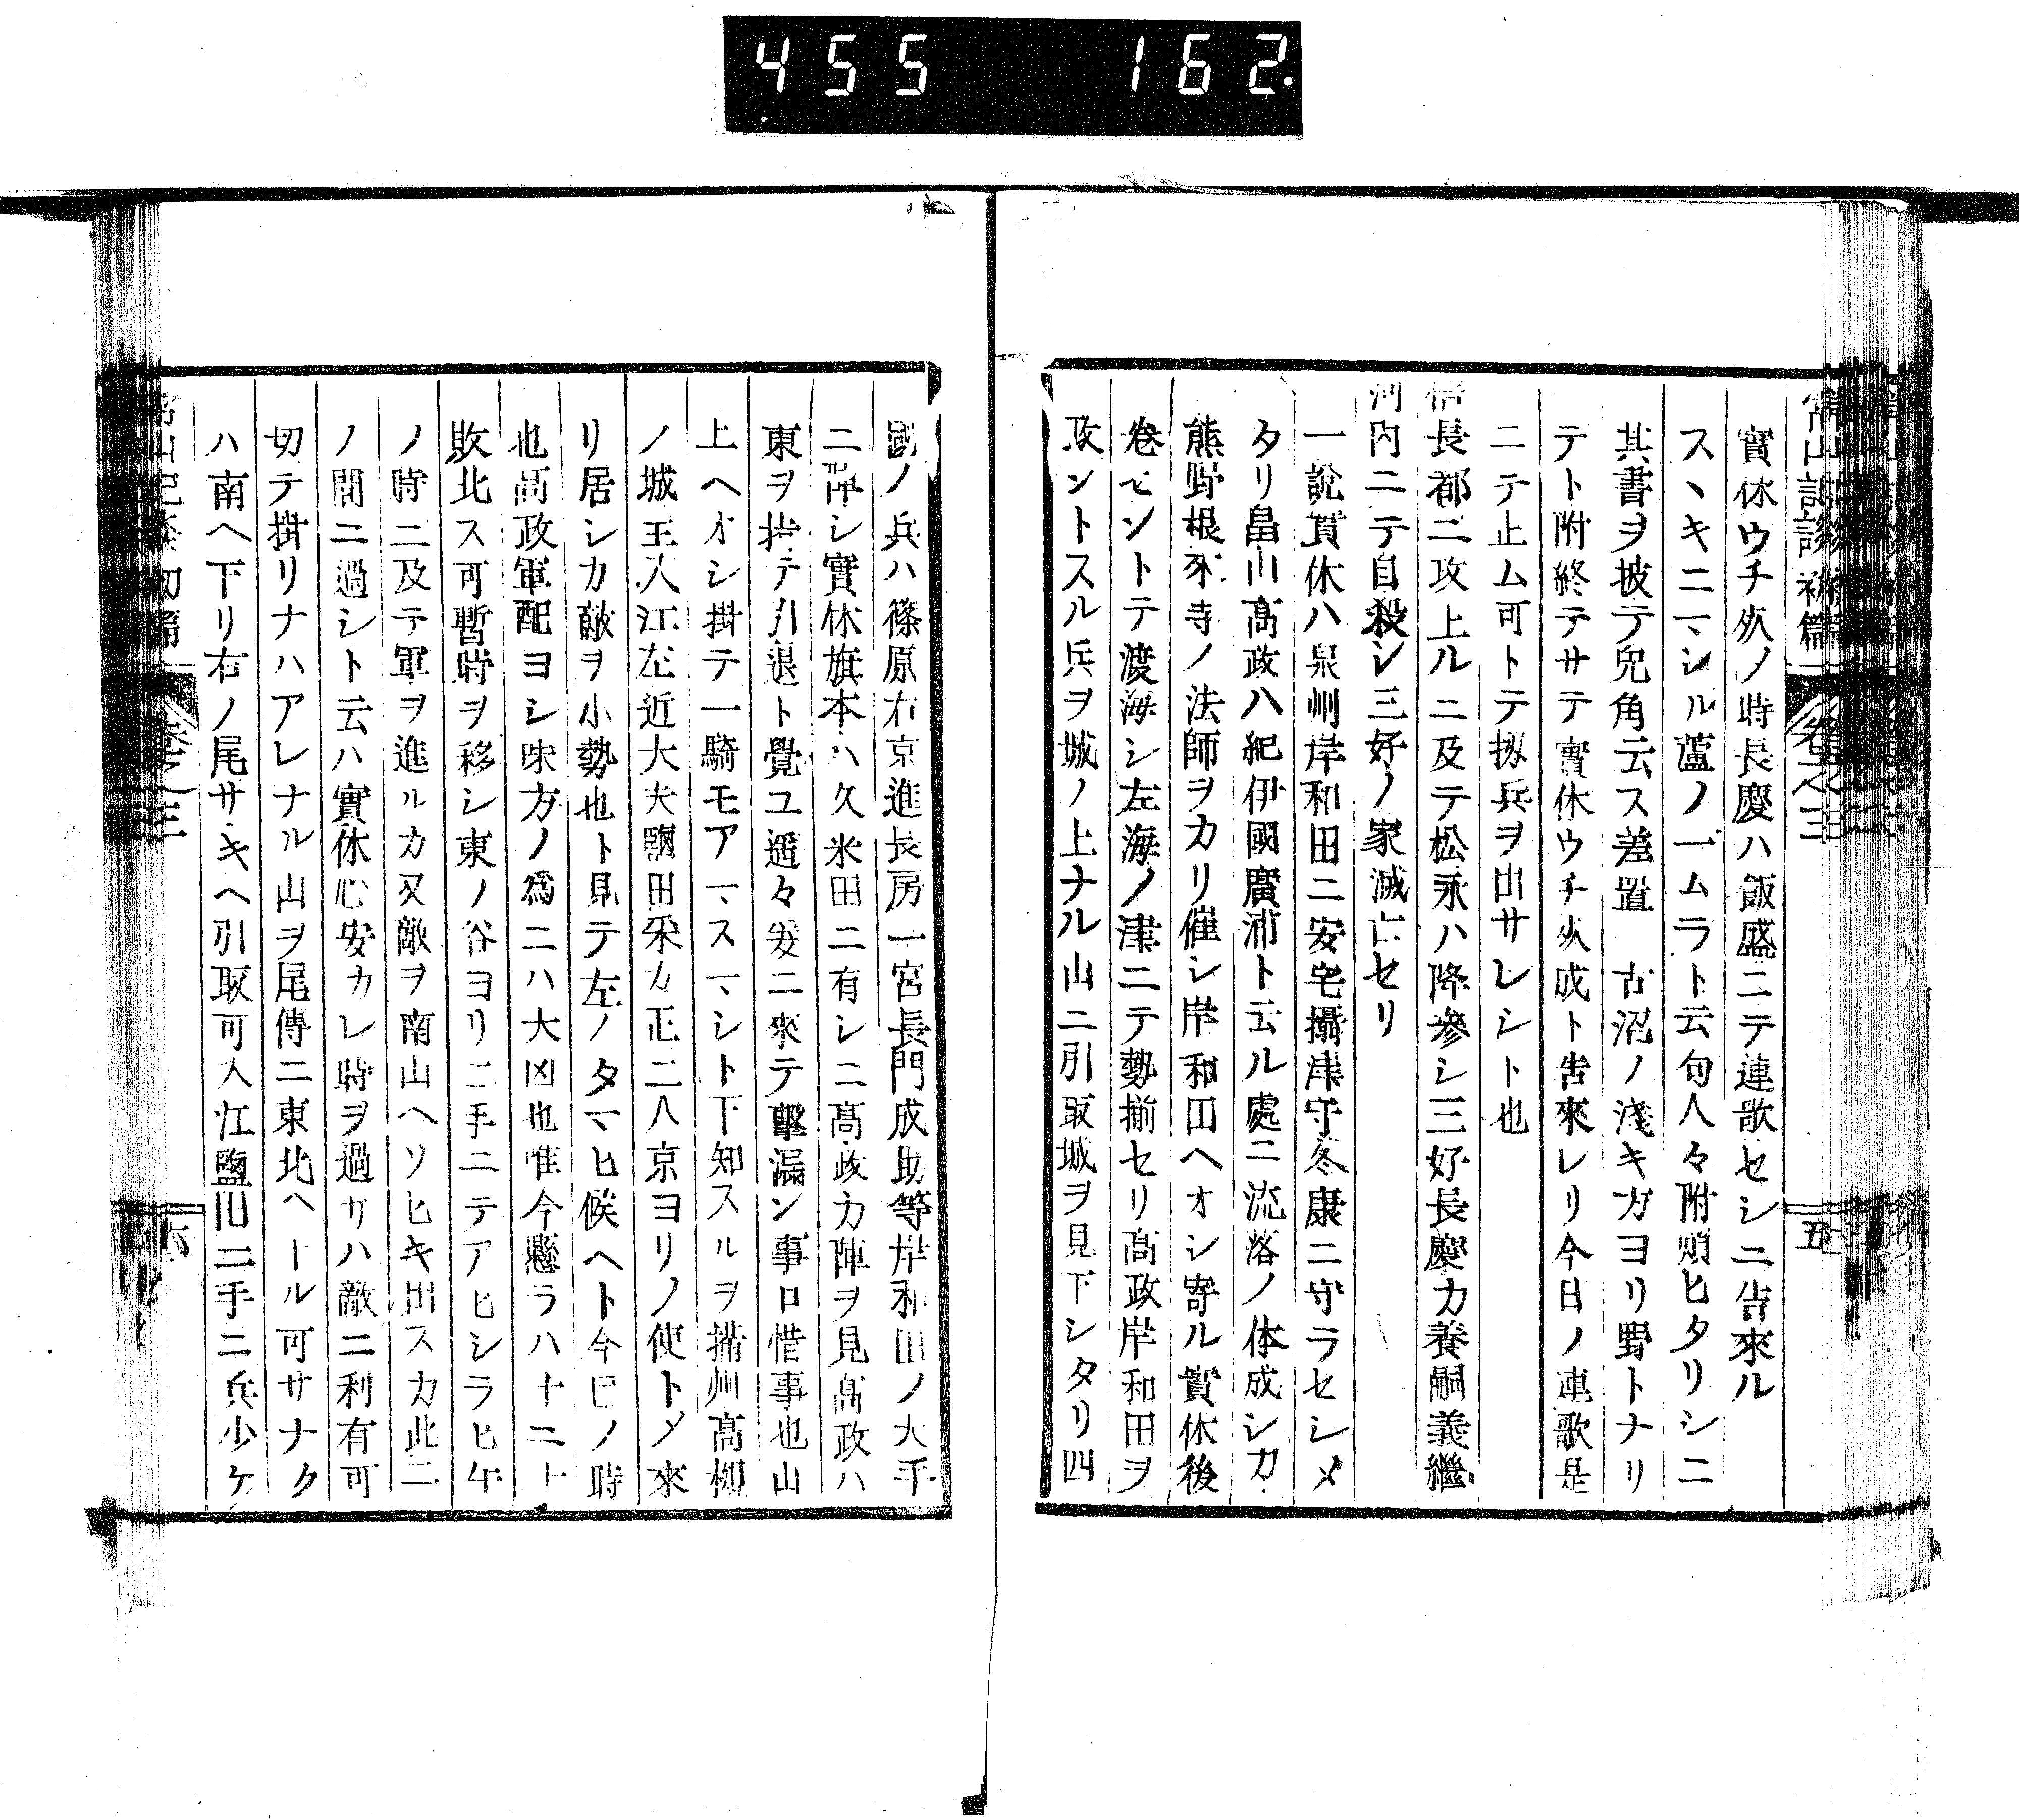 455 162.
常山紀談初篇 卷之三 五
實休ウチ死ノ時長慶ハ飯盛ニテ連歌セシニ告來ル
スヽキニマシル蘆ノ一ムラト云句人々附煩ヒタリシニ
其書ヲ披テ兎角云ス差置 古沼ノ淺キカヨリ野トナリ
テト附終テサテ實休ウチ死成ト告來レリ今日ノ連歌是
ニテ止ム可トテ扨兵ヲ出サレシト也
信長都ニ攻上ルニ及テ松永ハ降參シ三好長慶カ養嗣義繼
河内ニテ自殺シ三好ノ家滅亡セリ
一說實休ハ泉州岸和田ニ安宅攝津守冬康ニ守ラセシメ
タリ畠山高政ハ紀伊國廣浦ト云ル處ニ流落ノ体成シカ
熊野根來寺ノ法師ヲカリ催シ岸和田ヘオシ寄ル實休後
卷セントテ渡海シ左海ノ津ニテ勢揃セリ高政岸和田ヲ
攻ントスル兵ヲ城ノ上ナル山ニ引取城ヲ見下シタリ四
國ノ兵ハ篠原右京進長房一宮長門成助等岸和田ノ大手
ニ陣シ實休旗本ハ久米田ニ有シニ高政カ陣ヲ見高政ハ
東ヲ指テ引退ト覺ユ遥々爰ニ來テ擊漏ン事口惜事也山
上ヘオシ掛テ一騎モアマスマシト下知スルヲ攝州高槻
ノ城主入江左近大夫鹽田采カ正二人京ヨリノ使トメ來
リ居シカ敵ヲ小勢也ト見テ左ノタマヒ候ヘト今日ノ時
也高政軍配ヨシ味方ノ爲ニハ大凶也惟今懸ラハ十ニ十
敗北ス可暫時ヲ移シ東ノ谷ヨリ二手ニテアヒシラヒ午
ノ時ニ及テ軍ヲ進ルカ又敵ヲ南山ヘソヒキ出スカ此二
ノ間ニ過シト云ハ實休心安カレ時ヲ過サハ敵ニ利有可
切テ掛リナハアレナル山ヲ尾傳ニ東北ヘトル可サナク
ハ南ヘ下リ右ノ尾サキヘ引取可入江鹽田二手ニ兵少ケ
常山紀談初篇 卷之三 六